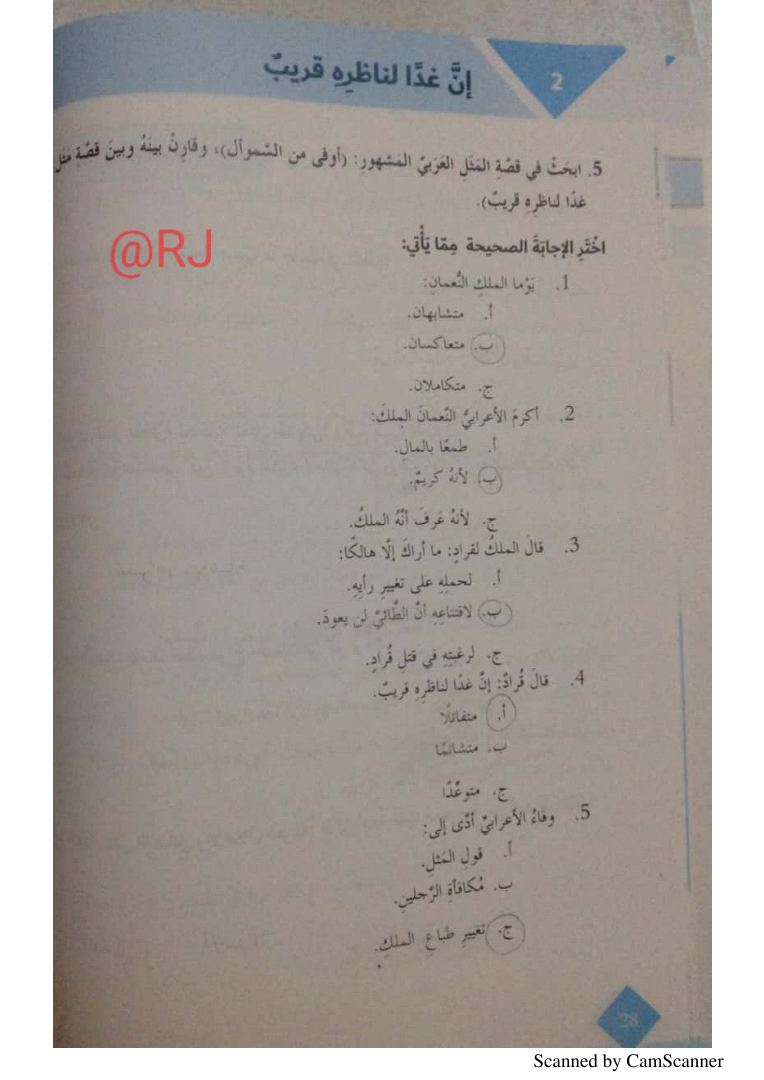 2
إنَّ غدًا لناظرِهِ قريبٌ
5. ابحَثْ في قصَّةِ المَثَلِ العَرَبيِّ المَشهورِ: (أوفى من السَّموأل)، وقارِنْ بينَهُ وبينَ قصَّة مَثَل
غدًا لناظرِهِ قريبٌ).
@RJ
اخْتَرِ الإجابَةَ الصحيحة مِمّا يَأْتي:
1. يَوْما الملكِ النُّعمانِ:
أ. متشابهان.
ب. متعاكسان.
ج. متكاملان.
2. أكرمَ الأعرابيُّ النُّعمانَ الملكَ:
أ. طمعًا بالمالِ.
ب. لأنهُ كريمٌ.
ج. لأنهُ عَرفَ أنَّهُ الملكُ.
3. قالَ الملكُ لقرادٍ: ما أراكَ إلّا هالكًا:
أ. لحملِهِ على تغييرِ رأيِهِ.
ب. لاقتناعِهِ أنّ الطّائيَّ لن يعودَ.
ج. لرغبتِهِ في قتلِ قُرادٍ.
4. قالَ قُرادٌ: إنَّ غدًا لناظرِهِ قريبٌ.
أ. متفائلًا
ب. متشائمًا
ج. متوعِّدًا
5. وفاءُ الأعرابيِّ أدّى إلى:
أ. قولِ المَثلِ.
ب. مُكافأةِ الرَّجلينِ.
ج. تغييرِ طباعِ الملكِ.
28
Scanned by CamScanner